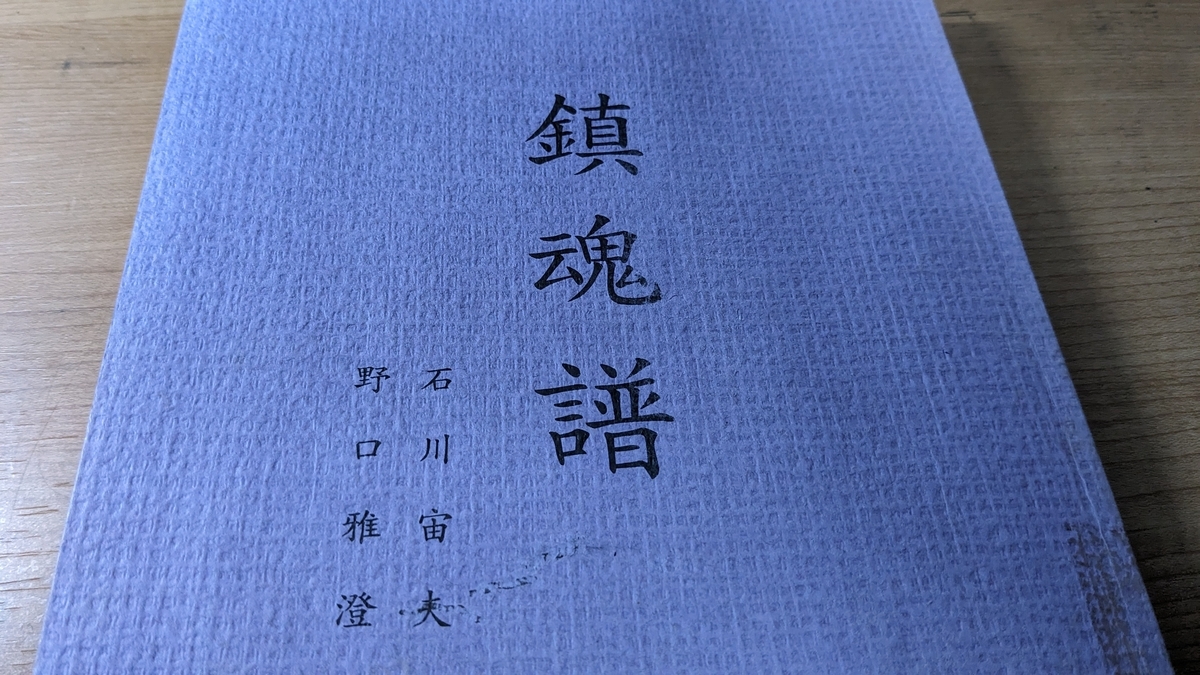 鎮魂譜
石川宙夫
野口雅澄